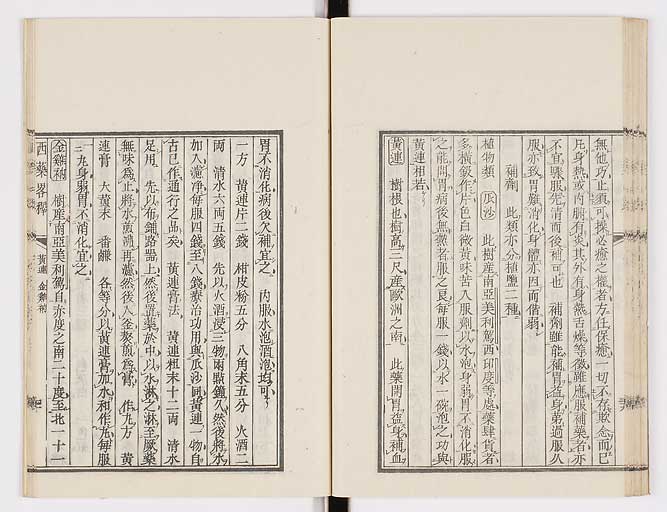 無他功止須可操必癒之權者方任保癒一切不存欺念而已
凡身熱或內腑有炎其外有身熱舌燥等徵雖應服補藥者亦
不宜驟服先清而後補可也　補劑雖能補胃益身第過服久
服亦致胃難消化身體亦因而偕弱
補劑　此類亦分植鹽二種
植物類　瓜沙　此樹產南亞美利駕西印度等處藥肆貨者
多橫鉸作片色白微黃味苦入服劑以水泡身弱胃不消化服
之能開胃病後無徵者服之良每服一錢以水一碗泡之功與
黃連相若
黃連　樹根也樹高三尺產歐洲之南　此藥開胃益身補血
胃不消化病後欠補宜之　內服水泡酒泡均可
一方　黃連片二錢　柑皮粉五分　八角末五分　火酒二
兩　清水六兩五錢　先以火酒浸三物兩點鐘久然後將水
加入濾淨每服四錢至八錢療治功用與瓜沙同黃連一物自
古已作通行之品矣　黃連膏法　黃連粗末十二兩　清水
足用　先以布鋪路器上然後置藥於中以水淋之淋至厥藥
無味為止將水煮滾再濾然後入釜熬煎為膏　作丸方　黃
連膏　大黃末　番鹼　各等分以黃連膏加水和作丸每服
三丸身弱胃不消化宜之
金雞納　樹產南亞美利駕自赤度之南二十度至北一十一
西藥畧釋
黃連　金雞納